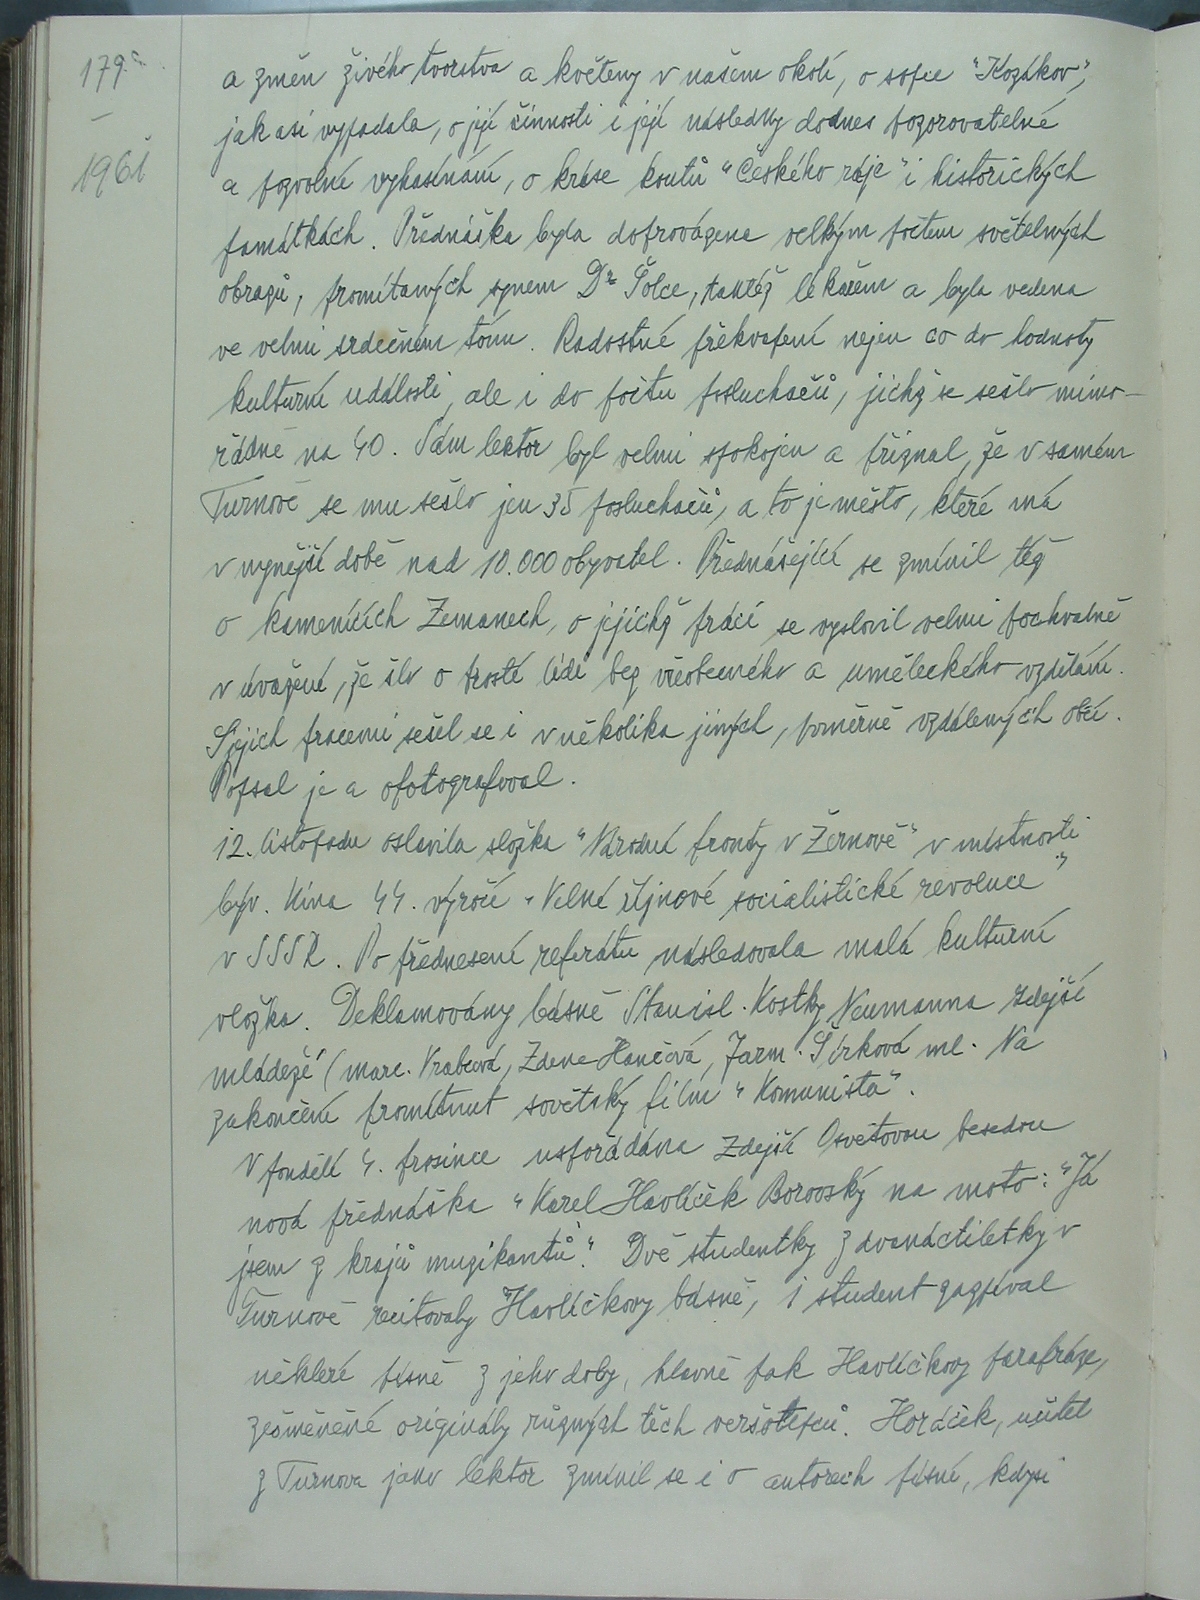 179.
1961
a změn živého tvorstva a květeny v našem okolí, o sopce "Kozákov",
jak asi vypadala, o její činnosti i její následky dodnes pozorovatelné
a pozvolné vyhasínání, o kráse koutů "Českého ráje" i historických
památkách. Přednáška byla doprovázena velkým počtem světelných
obrazů, promítaných synem Dr Šolce, taktéž lékařem a byla vedena
ve velmi srdečném tónu. Radostné překvapení nejen co do hodnoty
kulturní události, ale i do počtu posluchačů, jichž se sešlo mimo-
řádně na 40. Sám lektor byl velmi spokojen a přiznal, že v samém
Turnově se mu sešlo jen 35 posluchačů, a to je město, které má
v nynější době nad 10.000 obyvatel. Přednášející se zmínil též
o kamenících Zemanech, o jejichž práci se vyslovil velmi pochvalně
v uvážení, že šlo o prosté lidi bez všeobecného a uměleckého vzdělání.
S jejich pracemi sešel se i v několika jiných, poměrně vzdálených obcí.
Popsal je a ofotografoval.
12. listopadu oslavila složka "Národní fronty v Žernově" v místnosti
býv. kina 44. výročí "Velké říjnové socialistické revoluce"
v SSSR. Po přednesení referátu následovala malá kulturní
vložka. Deklamovány básně Stanisl. Kostky Neumanna zdejší
mládeží (Marc. Vrabcová, Zdena Hančová, Jarm. Sírková ml. Na
zakončení promítnut sovětský film "Komunista".
V pondělí 4. prosince uspořádána zdejší Osvětovou besedou
nová přednáška "Karel Havlíček Borovský na moto: "Já
jsem z krajů muzikantů". Dvě studentky z dvanáctiletky v
Turnově recitovaly Havlíčkovy básně, 1 student zazpíval
některé písně z jeho doby, hlavně pak Havlíčkovy parafráze,
zesměněné originály různých těch veršotepců. Horáček, učitel
z Turnova jako lektor zmínil se i o autorech písní, kdysi